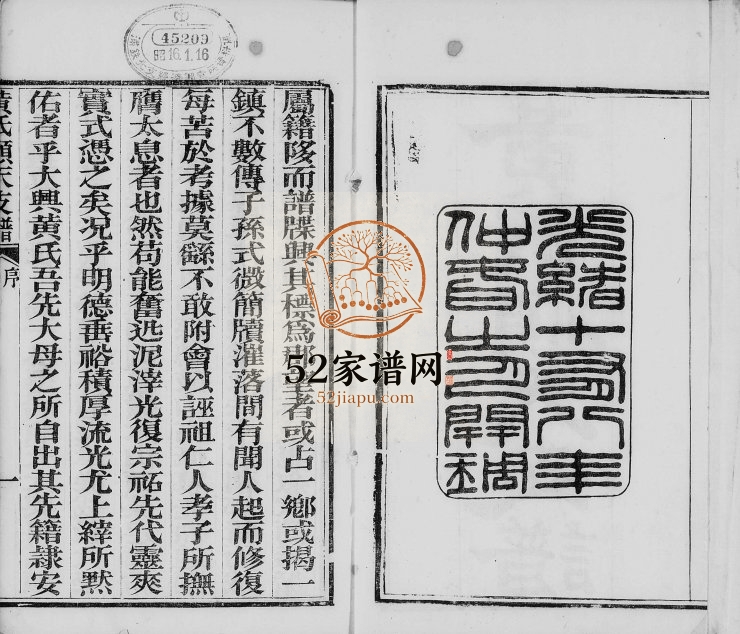 光緒十有八年
仲春之月開琱
45209
昭16.1.16
屬籍侈而譜牒興其標為郡望者或占一鄉或揭一
鎮不數傳子孫式微簡牘漼落間有聞人起而修復
每苦於考據莫繇不敢附會以誣祖仁人孝子所撫
膺太息者也然苟能奮迅泥滓光復宗祐先代靈爽
實式憑之矣况乎明德垂裕積厚流光尤上縡所默
佑者乎大興黃氏吾先大母之所自出其先籍隸安
黃氏順天支譜 序 一
52家谱网
52jiapu.com